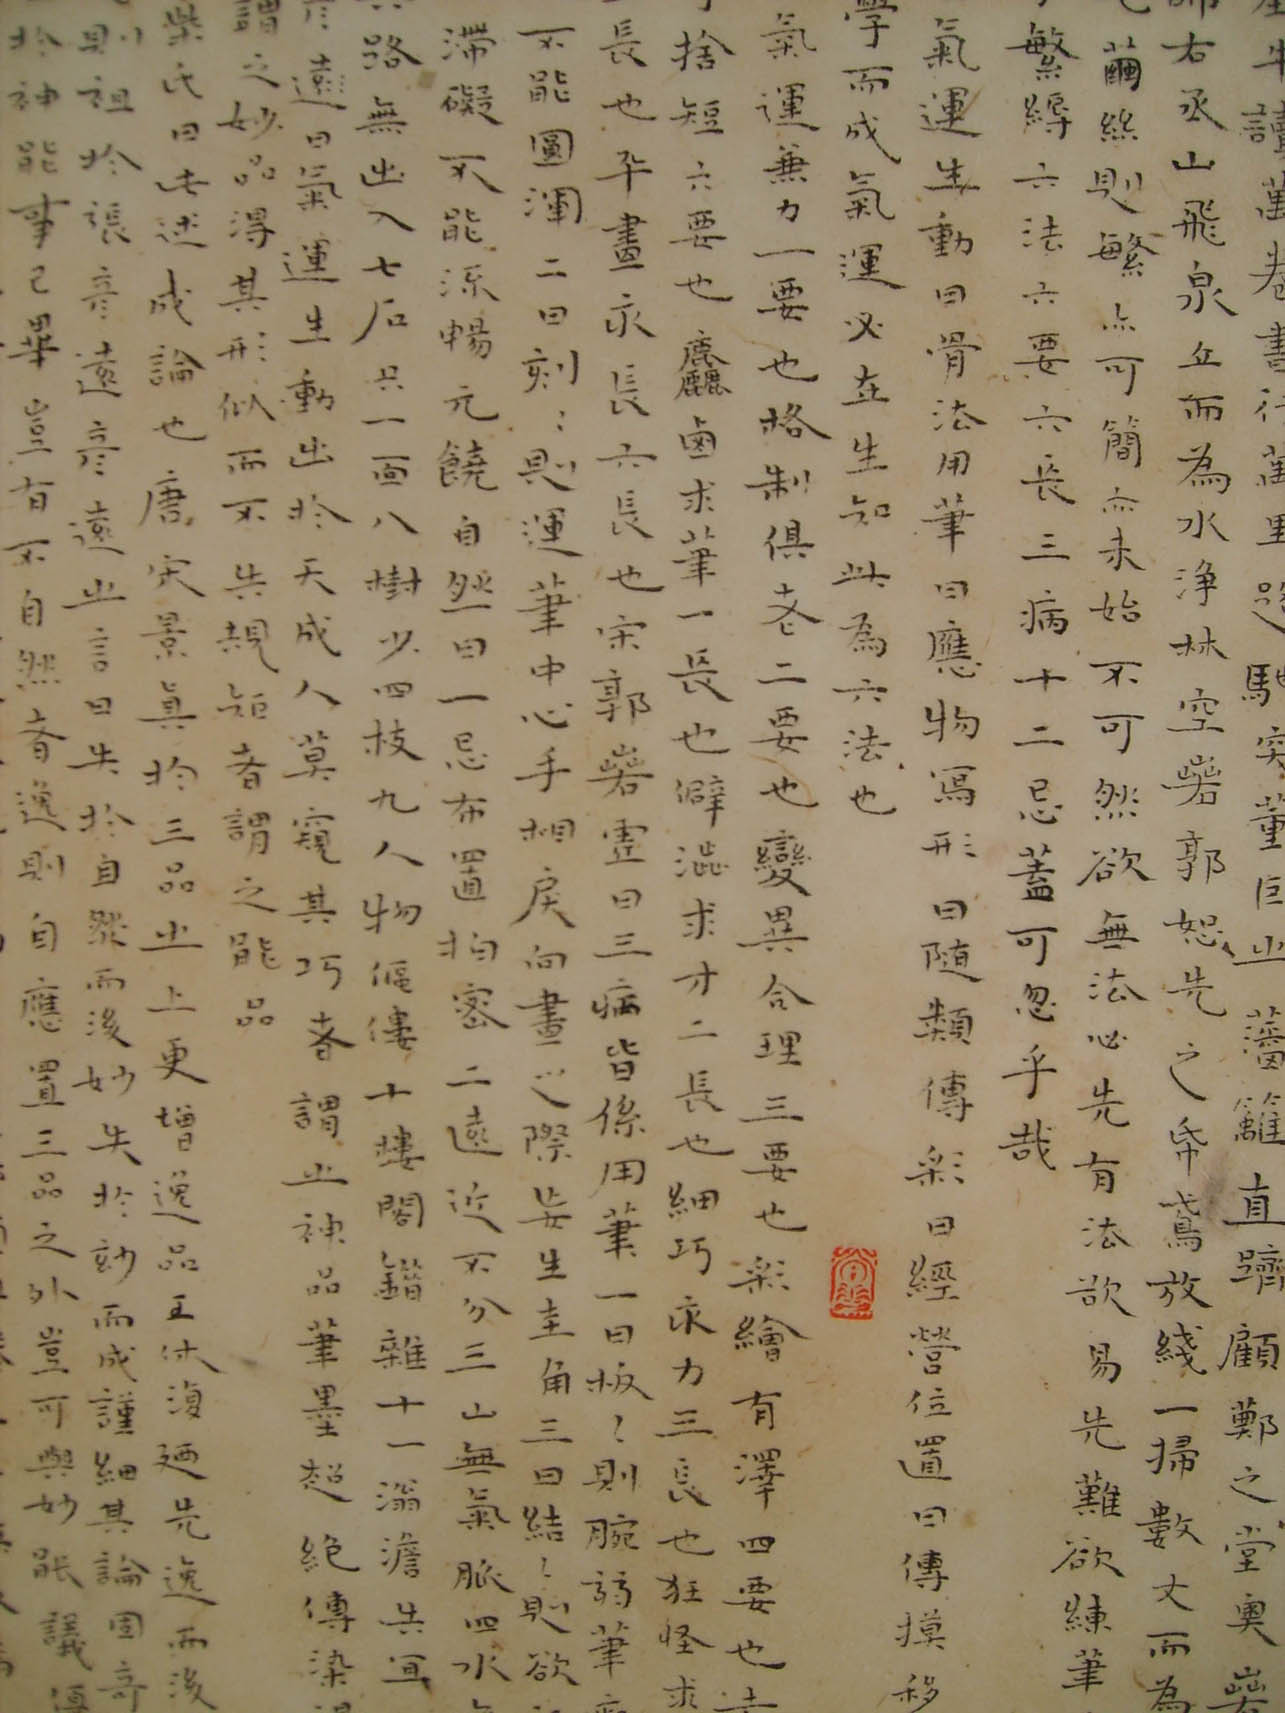 牛讀萬卷書行萬里路馳突董巨之藩籬直躋顧鄭之堂奧
右丞山飛泉立而為水淨林空喦郭恕先之帋鳶放綫一掃數丈而為
繭絲則繁亦可簡亦未始不可然欲無法必先有法欲易先難欲練筆
繁縟六法六要六長三病十二忌蓋可忽乎哉
氣運生動曰骨法用筆曰應物寫形曰随類傳彩曰經營位置曰傳摸移
學而成氣運必在生知此為六法也
氣運兼力一要也格制俱老二要也變異合理三要也彩繪有澤四要也
捨短六要也麤鹵求筆一長也僻澁求才二長也細巧求力三長也狂怪求
長也平畫求長六長也宋郭喦靈曰三病皆係用筆一曰板〻則腕弱筆
不能圓渾二曰刻〻則運筆中心手相戾向畫之際妄生圭角三曰結〻則欲
滯礙不能流暢元饒自然曰一忌布置拍密二遠近不分三山無氣脈四水
路無出入七石只一面八樹少四枝九人物傴僂十樓閣錯雜十一滃澹失宜
彦遠曰氣運生動出於天成人莫窺其巧者謂之神品筆墨超絶傳染
謂之妙品得其形似而不失規矩者謂之能品
柴氏曰此述成論也唐宋景真於三品之上更增逸品王休復廼先逸而後
則祖於張彦遠彦遠之言曰失於自然而後妙失於妙而成謹細其論固奇
於神能事已畢豈有不自然者逸則自應置三品之外豈可與妙能議